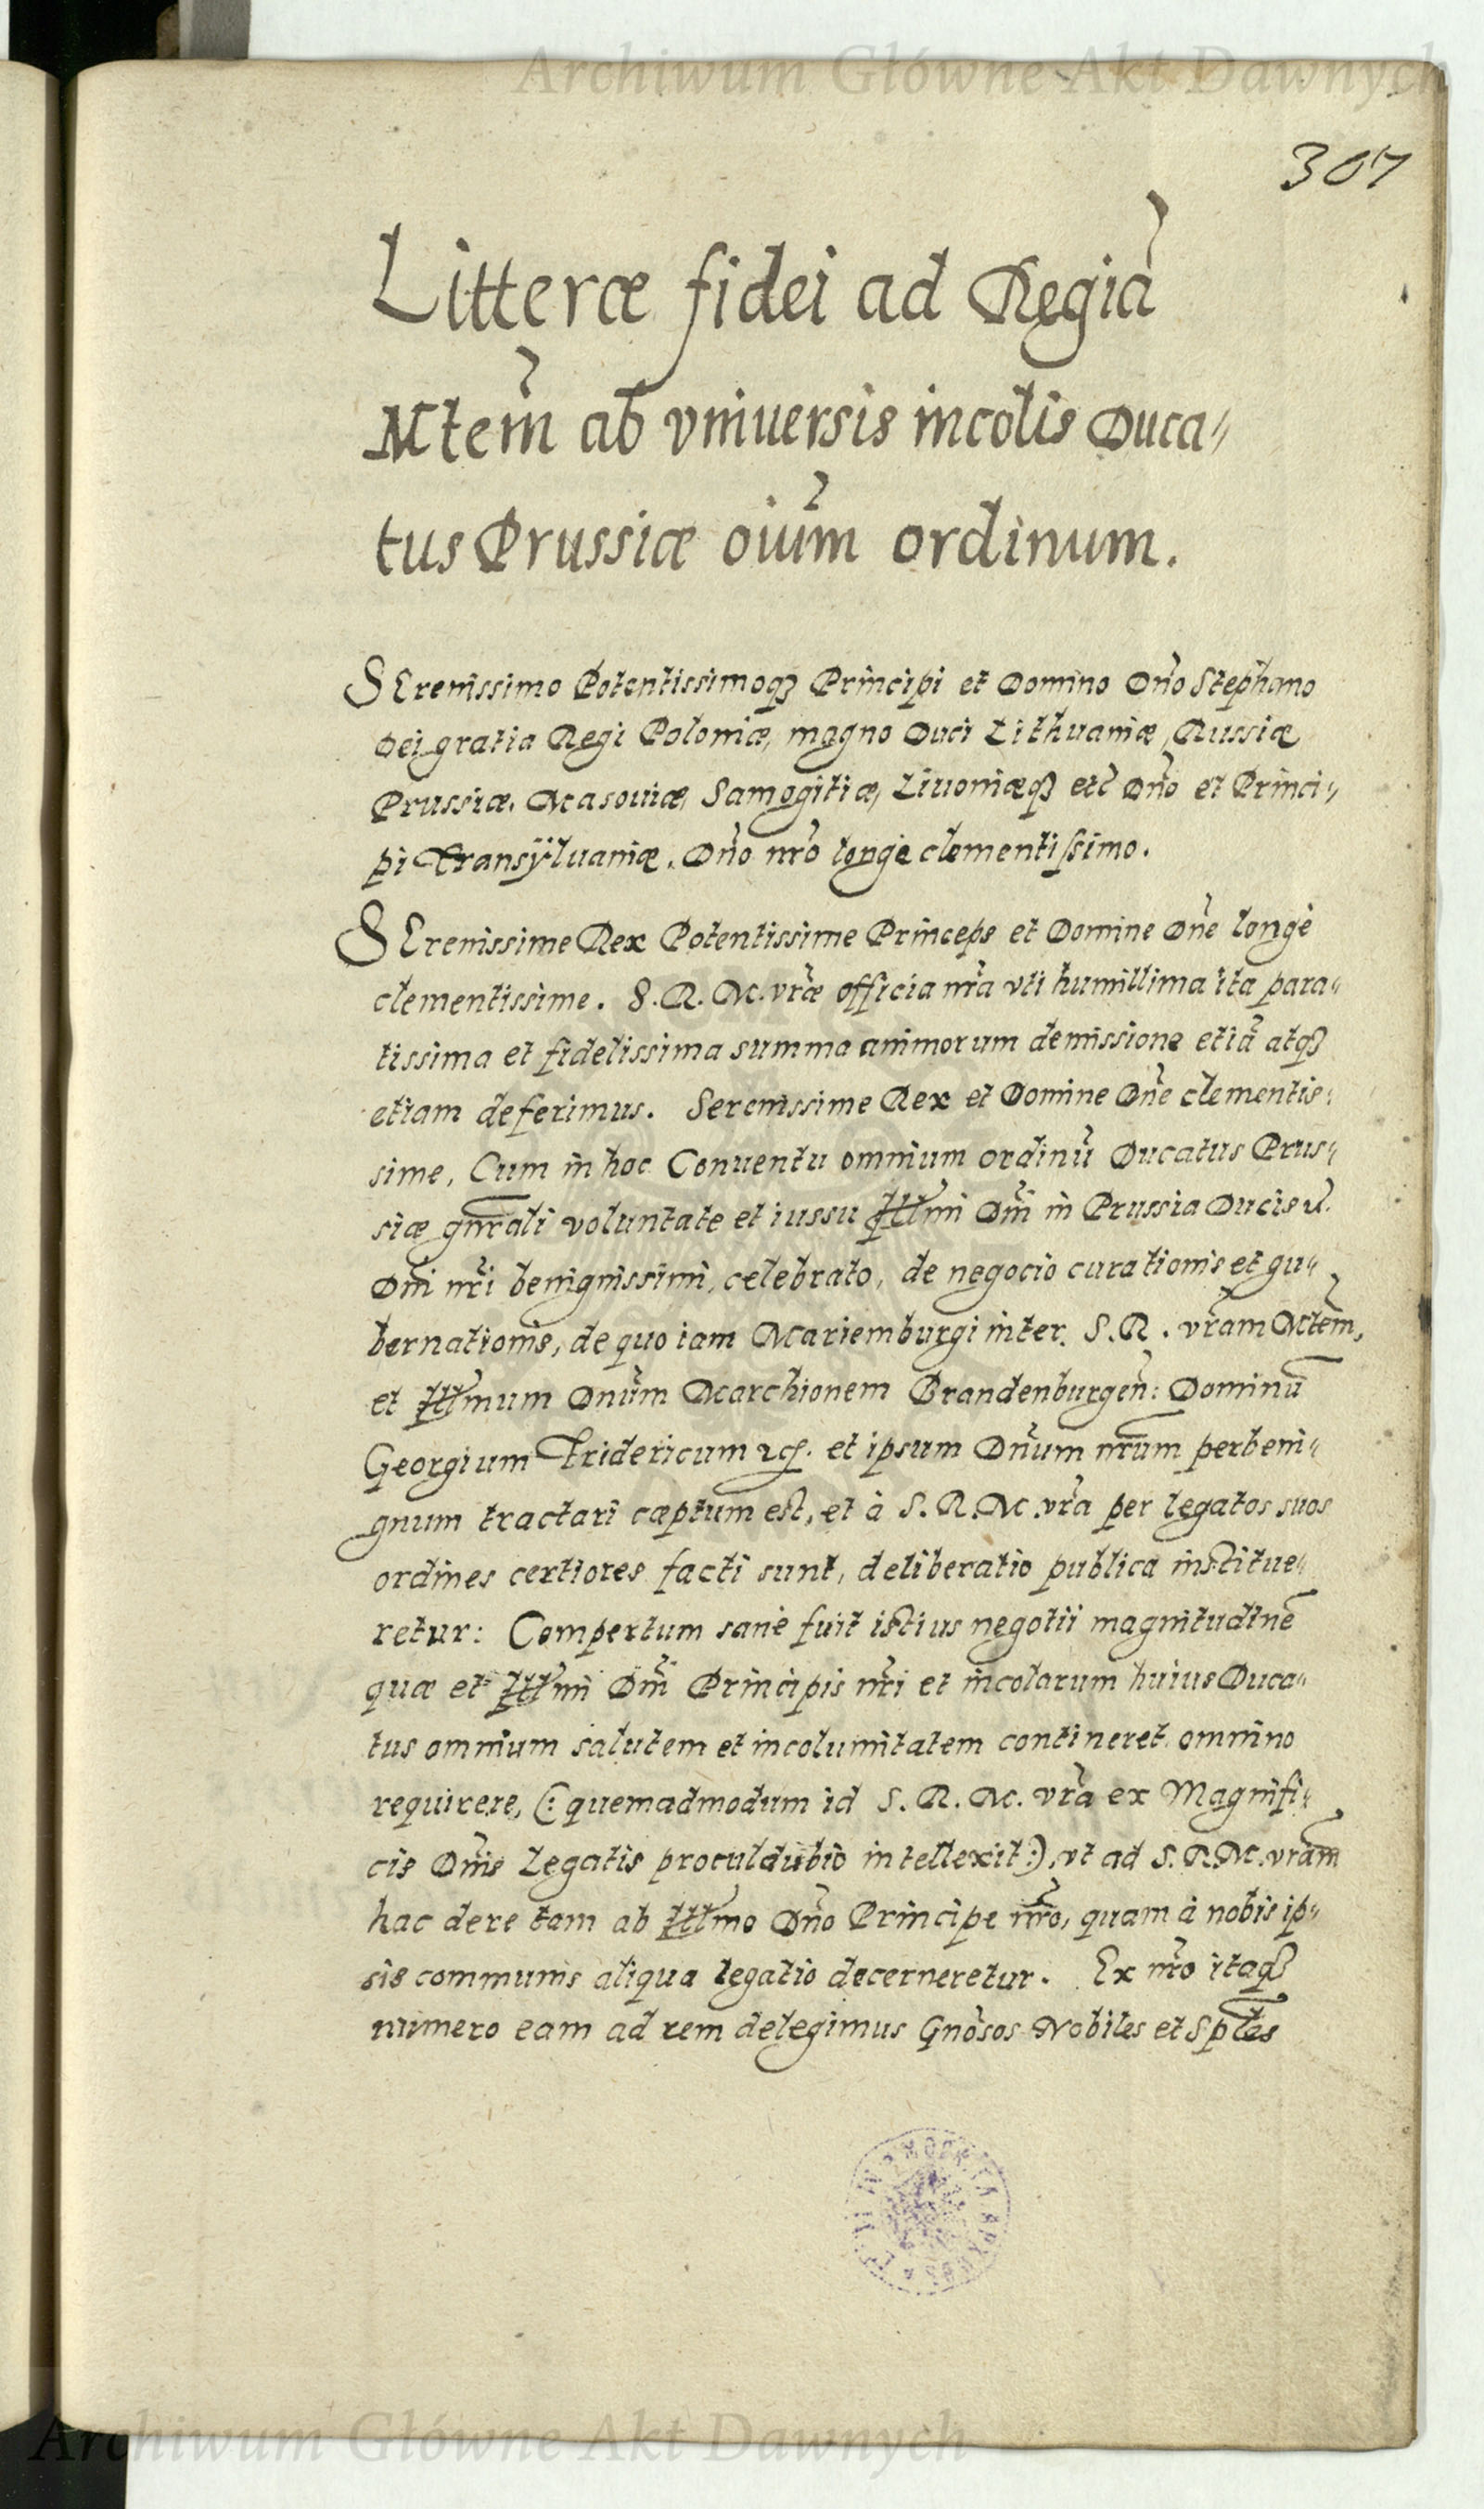 Archiwum Główne Akt Dawnych
307
Litteræ fidei ad Regiã
Mtem̃ ab vniuersis incolis Duca„
tus Prussiæ oium̃ ordinum.
SErenissimo Potentissimoqꝫ Principi et Domino Dño Stephano
Dei gratia Regi Poloniæ, magno Duci Lithuaniæ, Russiæ
Prussiæ, Masouiæ, Samogitiæ, Liuoniæqꝫ etc̃ Dño et Princi„
pi Transÿluaniæ, Dño nr̃o longè clementissimo.
SErenissime Rex Potentissime Princeps et Domine Dñe longè
clementissime. S. R. M. vr̃æ officia nr̃a vti humillima ita para„
tissima et fidelissima summa animorum demissione etiã atqꝫ
etiam deferimus. Serenissime Rex et Domine Dñe clementis„
sime, Cum in hoc Conuentu omnium ordinũ Ducatus Prus„
siæ gnr̃ali voluntate et iussu Illm̃i Dñi in Prussia Ducis
Dñi nr̃i benignissimi, celebrato, de negocio curationis et gu„
bernationis, de quo iam Mariemburgi inter S. R. vr̃am Mtem̃,
et Illm̃um Dnũm Marchionem Brandenburgeñ: Dominũ
Georgium Fridericum ꝛc. et ipsum Dñum nr̃um perbeni„
gnum tractari cæptum est, et à S. R. M. vr̃a per legatos suos
ordines certiores facti sunt, deliberatio publica institue„
retur: Compertum sanè fuit istius negotii magnitudinẽ
quæ et Illm̃i Dñi Principis nr̃i et incolarum huius Duca„
tus omnium salutem et incolumitatem contineret omnino
requirere, (: quemadmodum id S. R. M. vr̃a ex Magnifi„
cis Dñis Legatis proculdubio intellexit :), vt ad S. R. M. vr̃am
hac de re tam ab Illm̃o Dño Principe nr̃o, quam à nobis ip„
sis communis aliqua legatio decerneretur. Ex nr̃o itaqꝫ
numero eam ad rem delegimus Gnõsos Nobiles et Spl̃es
Archiwum Główne Akt Dawnych